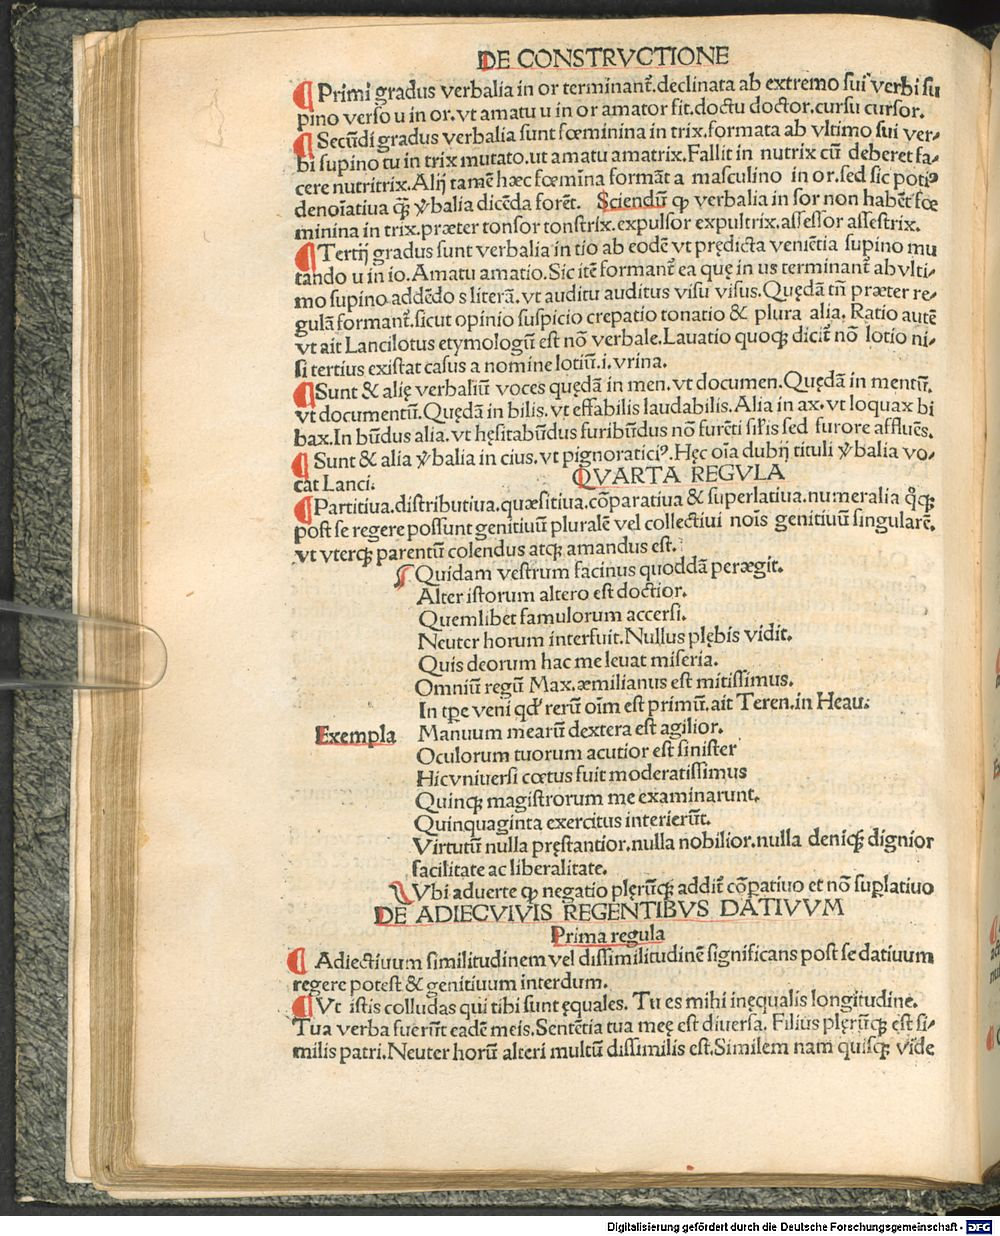 DE CONSTRVCTIONE
¶ Primi gradus verbalia in or terminant᷑.declinata ab extremo sui verbi su
pino verso u in or.vt amatu u in or amator fit.doctu doctor.cursu cursor.
¶ Secūdi gradus verbalia sunt fœminina in trix.formata ab vltimo sui ver⸗
bi supino tu in trix mutato.ut amatu amatrix.Fallit in nutrix cū deberet fa⸗
cere nutritrix.Alij tamē hæc fœmīna formāt a masculino in or.sed sic potiꝰ
denoīatiua q̄̃ v̓balia dicēda forēt. Sciendū ꝙ verbalia in sor non habēt fœ
minina in trix.præter tonsor tonstrix.expulsor expultrix.assessor assestrix.
¶ Tertij gradus sunt verbalia in tio ab eodē vt prędicta veniētia supino mu
tando u in io.Amatu amatio.Sic itē formant᷑ ea quę in us terminant᷑ ab vlti⸗
mo supino addēdo s literā.vt auditu auditus visu visus.Quędā tñ præter re⸗
gulā formant᷑.sicut opinio suspicio crepatio tonatio & plura alia. Ratio autē
vt ait Lancilotus etymologū est nō verbale.Lauatio quoqꝫ dicit᷑ nō lotio ni⸗
si tertius existat casus a nomine lotiū.i.vrina.
¶ Sunt & alię verbaliū voces quędā in men.vt documen.Quędā in mentū.
vt documentū.Quędā in bilis.vt effabilis laudabilis.Alia in ax.vt loquax bi
bax.In būdus alia.vt hęsitabūdus furibūdus nō furēti sil̓is sed furore affluēs.
¶ Sunt & alia v̓balia in cius.vt pignoraticiꝰ.Hęc oīa dubij tituli v̓balia vo⸗
cat Lanci.
QVARTA REGVLA
¶ Partitiua.distributiua.quæsitiua.cōparatiua & superlatiua.numeralia q̊qꝫ
post se regere possunt genitiuū pluralē vel collectiui nois genitiuū singularē.
vt vterqꝫ parentū colendus atqꝫ amandus est.
Quidam vestrum facinus quoddā peræegit.
Alter istorum altero est doctior.
Quemlibet famulorum accersi.
Neuter horum interfuit.Nullus plębis vidit.
Quis deorum hac me leuat miseria.
Omniū regū Max.æmilianus est mitissimus.
In tp̄e veni qd̓ rerū oīm est primū.ait Teren.in Heau.
Exempla Manuum mearū dextera est agilior.
Oculorum tuorum acutior est sinister
Hic vniuersi cœtus fuit moderatissimus
Quinqꝫ magistrorum me examinarunt.
Quinquaginta exercitus interierūt.
Virtutū nulla pręstantior.nulla nobilior.nulla deniqꝫ dignior
facilitate ac liberalitate.
Vbi aduerte ꝙ negatio plęrūqꝫ addit᷑ cōꝑatiuo et nō suꝑlatiuo
DE ADIECVIVIS REGENTIBVS DATIVVM
Prima regula
¶ Adiectiuum similitudinem vel dissimilitudinē significans post se datiuum
regere potest & genitiuum interdum.
¶ Vt istis colludas qui tibi sunt ęquales. Tu es mihi inęqualis longitudine.
Tua verba fuerūt eadē meis.Sentētia tua meę est diuersa. Filius plęrūqꝫ est si⸗
milis patri.Neuter horū alteri multū dissimilis est.Similem nam quisqꝫ vide
Digitalisierung gefördert durch die Deutsche Forschungsgemeinschaft - DFG